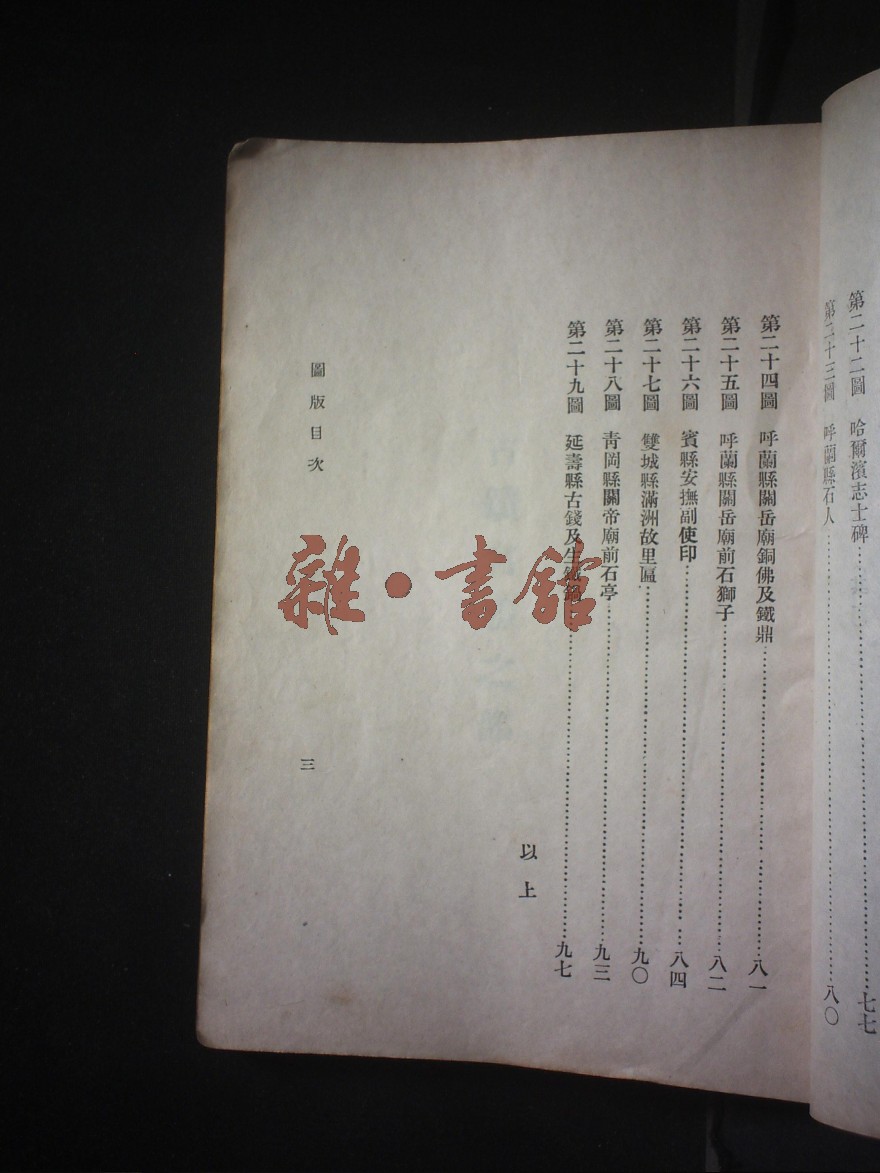 第二十二圖　哈爾濱志士碑……七七
第二十三圖　呼蘭縣石人……八〇
第二十四圖　呼蘭縣關岳廟銅佛及鐵鼎……八一
第二十五圖　呼蘭縣關岳廟前石獅子……八二
第二十六圖　賓縣安撫副使印……八四
第二十七圖　雙城縣滿洲故里匾……九〇
第二十八圖　青岡縣關帝廟前石亭……九三
第二十九圖　延壽縣古錢及生鐵鍋……九七
以上
圖版目次
三
雜·書館